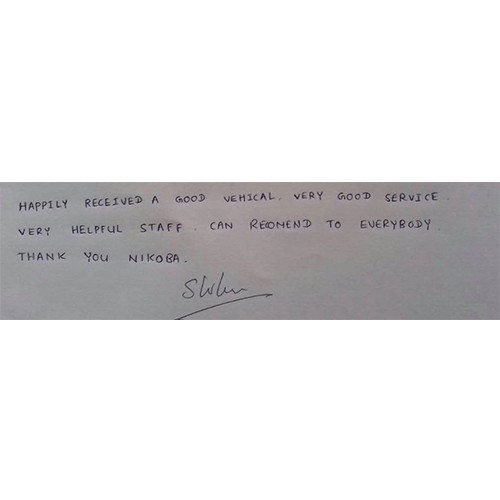 HAPPILY RECEIVED A GOOD VEHICAL. VERY GOOD SERVICE.
VERY HELPFUL STAFF. CAN RECOMEND TO EVERYBODY.
THANK YOU NIKOBA.